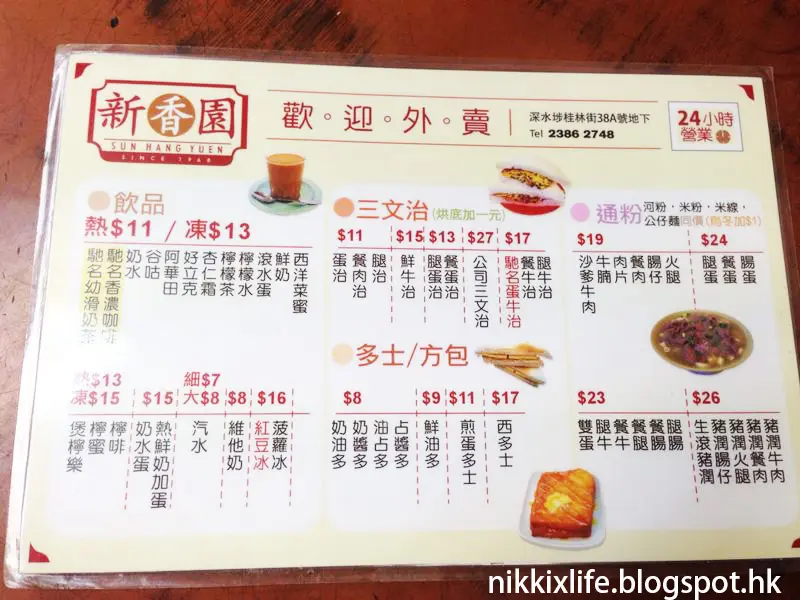 新香園
SUN HANG YUEN
SINCE 1968
歡。迎。外。賣
深水埗桂林街38A號地下
Tel 2386 2748
24小時
營業
飲品
熱$11 / 凍$13
馳名幼滑奶茶
馳名香濃咖啡
奶水
谷咕
阿華田
好立克
杏仁霜
檸檬茶
檸檬水
滾水蛋
鮮奶
西洋菜蜜
熱$13
凍$15
煲檸樂
檸蜜
檸啡
$15
奶水蛋
熱鮮奶加蛋
細$7
大$8
汽水
$8
維他奶
$16
紅豆冰
菠蘿冰
三文治(烘底加一元)
$11
蛋治
餐肉治
腿治
$15
鮮牛治
$13
腿蛋治
餐蛋治
$27
公司三文治
$17
馳名蛋牛治
餐牛治
腿牛治
多士/方包
$8
奶油多
奶醬多
油占多
占醬多
$9
鮮油多
$11
煎蛋多士
$17
西多士
通粉
河粉，米粉，米線，
公仔麵同價(烏冬加$1)
$19
沙爹牛肉
牛腩
肉片
餐肉
腸仔
火腿
$24
腿蛋
餐蛋
腸蛋
$23
雙蛋
腿牛
餐牛
餐腿
餐腸
腿腸
$26
生滾豬潤
豬潤腸仔
豬潤火腿
豬潤餐肉
豬潤牛肉
nikkixlife.blogspot.hk